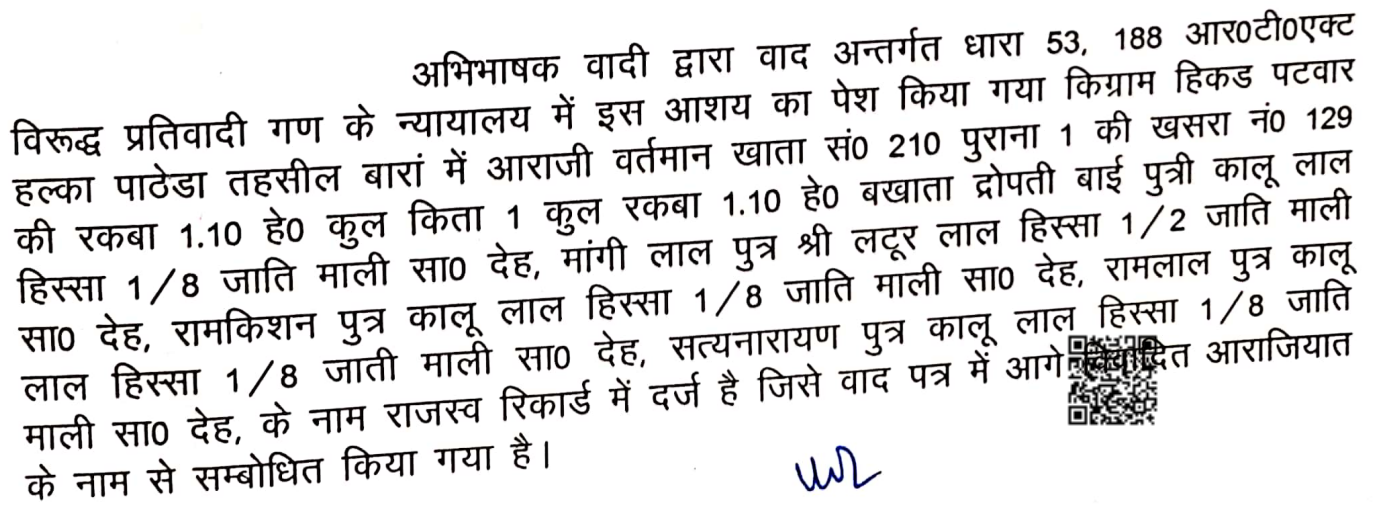 अभिभाषक वादी द्वारा वाद अन्तर्गत धारा 53, 188 आर0टी0एक्ट
विरूद्ध प्रतिवादी गण के न्यायालय में इस आशय का पेश किया गया किग्राम हिकड पटवार
हल्का पाठेडा तहसील बारां में आराजी वर्तमान खाता सं0 210 पुराना 1 की खसरा नं0 129
की रकबा 1.10 हे0 कुल किता 1 कुल रकबा 1.10 हे0 बखाता द्रोपती बाई पुत्री कालू लाल
हिस्सा 1/8 जाति माली सा0 देह, मांगी लाल पुत्र श्री लटूर लाल हिस्सा 1/2 जाति माली
सा0 देह, रामकिशन पुत्र कालू लाल हिस्सा 1/8 जाति माली सा0 देह, रामलाल पुत्र कालू
लाल हिस्सा 1/8 जाती माली सा0 देह, सत्यनारायण पुत्र कालू लाल हिस्सा 1/8 जाति
माली सा0 देह, के नाम राजस्व रिकार्ड में दर्ज है जिसे वाद पत्र में आगे विवादित आराजियात
के नाम से सम्बोधित किया गया है।